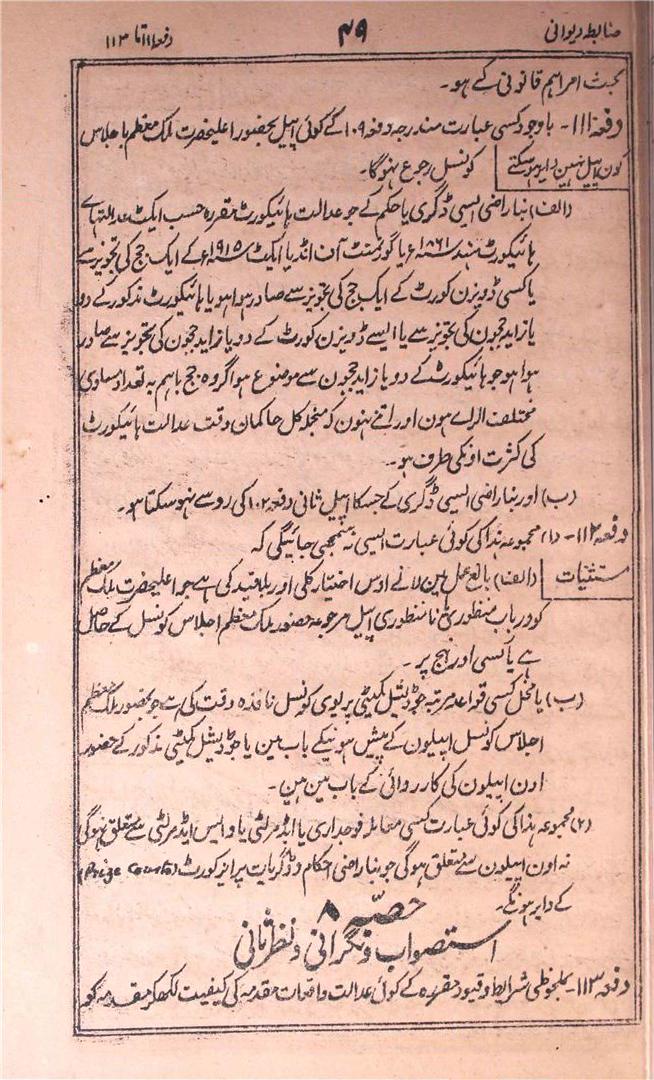 ضابطہ دیوانی ۴۹ دفعہ ۱۱۱ تا ۱۱۳
بحث امر اہم قانونی کے ہو۔
دفعہ ۱۱۱۔ باوجود کسی عبارت مندرجہ دفعہ ۱۰۹ کے کوئی اپیل بحضور اعلیحضرت ملک معظم باجلاس
کون اپیل نہین دایر ہو سکتے
کونسل رجوع نہوگا۔
(الف) بناراضی ایسی ڈگری یا حکم کے جو عدالت ہائیکورٹ مقررہ حسب ایکٹ عدالتہاے
ہائیکورٹ ہند ۱۸۶۱ء یا گورنمنٹ آف انڈیا ایکٹ ۱۹۱۵ء کے ایک جج کی تجویز سے
یا کسی ڈویزن کورٹ کے ایک جج کی تجویز سے صادر ہوا ہو یا ہائیکورٹ مذکور کے دو
یا زاید ججون کی تجویز سے یا ایسے ڈویزن کورٹ کے دو یا زاید ججون کی تجویز سے صادر
ہوا ہو جو ہائیکورٹ کے دو یا زاید ججون سے موضوع ہو اگر وہ جج باہم بہ تعداد مساوی
مختلف الراے ہون اور اتنے نہون کہ منجملہ کل حاکمان وقت عدالت ہائیکورٹ
کی کثرت اونکی طرف ہو۔
(ب) اور بناراضی ایسی ڈگری کے جسکا اپیل ثانی دفعہ ۱۰۲ کی رو سے نہو سکتا ہو۔
دفعہ ۱۱۲۔ (۱) مجموعہ ہذا کی کوئی عبارت ایسی نہ سمجھی جائیگی کہ
مستثنیات
(الف) مانع عمل مین لانے اوس اختیار کلی اور بلاقید کی ہے جو اعلیحضرت ملک معظم
کو درباب منظوری یا نامنظوری اپیل مرجوعہ حضور ملک معظم اجلاس کونسل کے حاصل
ہے یا کسی اور نہج پر۔
(ب) یا مخل کسی قواعد مرتبہ جوڈیشل کمیٹی پریوی کونسل نافذہ وقت کی ہے جو بحضور ملک معظم
اجلاس کونسل اپیلون کے پیش ہونیکے باب مین یا جوڈیشل کمیٹی مذکور کے حضور
اون اپیلون کی کارروائی کے باب مین ہین۔
(۲) مجموعہ ہذا کی کوئی عبارت کسی معاملہ فوجداری یا ایڈمرلٹی یا وایس ایڈمرلٹی سے متعلق نہوگی
نہ اون اپیلون سے متعلق ہوگی جو بناراضی احکام و ڈگریات پرایز کورٹ (Prize Courts)
کے دایر ہونگے۔
حصہ ۸
استصواب و نگرانی و نظرثانی
دفعہ ۱۱۳۔ بملحوظی شرایط و قیود مقررہ کے کوئی عدالت واقعات مقدمہ کی کیفیت لکھکر مقدمہ کو